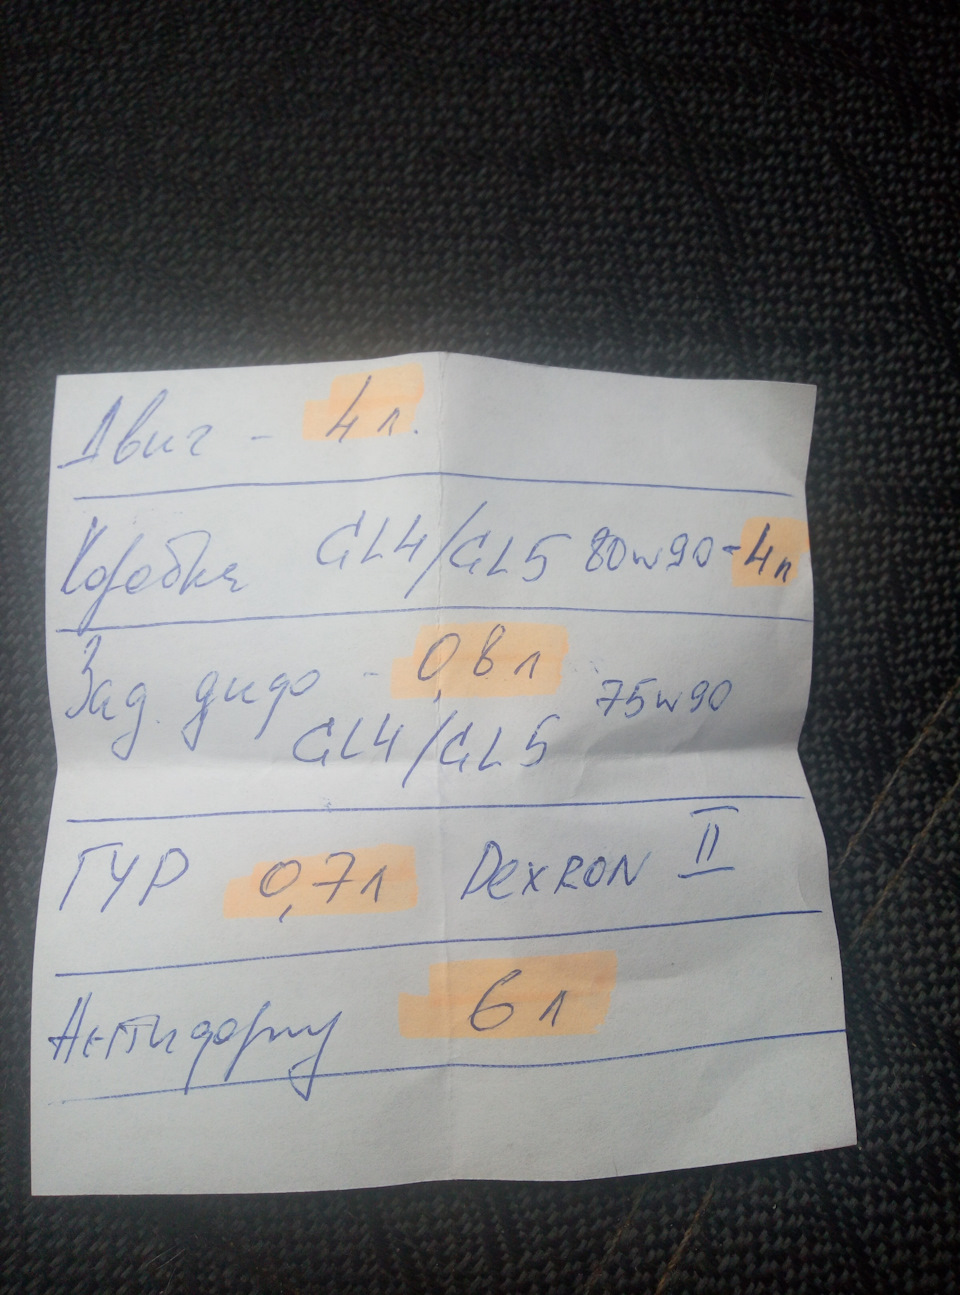 Двиг - 4 л.
Коробка GL4/GL5 80w90-4л
Зад. дифф - 0,8 л 75w90
GL4/GL5
ГУР 0,7л DEXRON II
Антифриз 6 л